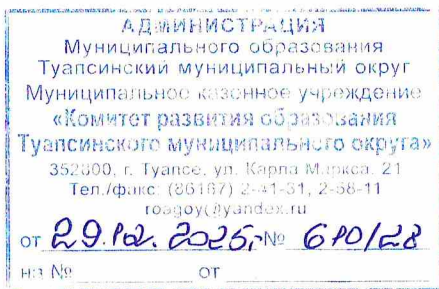 АДМИНИСТРАЦИЯ
Муниципального образования
Туапсинский муниципальный округ
Муниципальное казенное учреждение
«Комитет развития образования
Туапсинского муниципального округа»
352800, г. Туапсе, ул. Карла Маркса, 21
Тел./факс: (86167) 2-41-31, 2-58-11
roagoy@yandex.ru
от 29. 2025г № 610/28
на № от